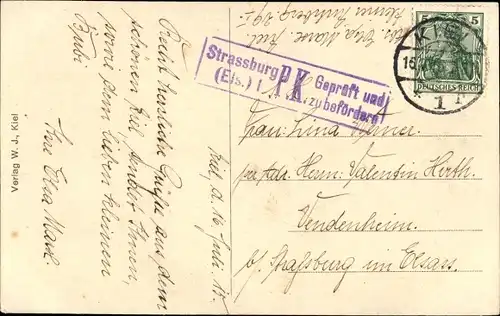 Recht herzliche Grüße aus dem
schönen Kiel sendet Ihnen,
sowie dem lieben kleinen
Bubi
Frau Elsa Marx.
Verlag W. J., Kiel
Kiel, d. 16. Juli 15.
Strassburg PK Geprüft und
(Els.) 1. zu befördern!
KIEL
16.
1
5 5
DEUTSCHES REICH
Frau Lina
per Adr. Herrn Valentin Hirth.
Vendenheim
b/ Straßburg im Elsass.
Elsa Marx. Kiel.